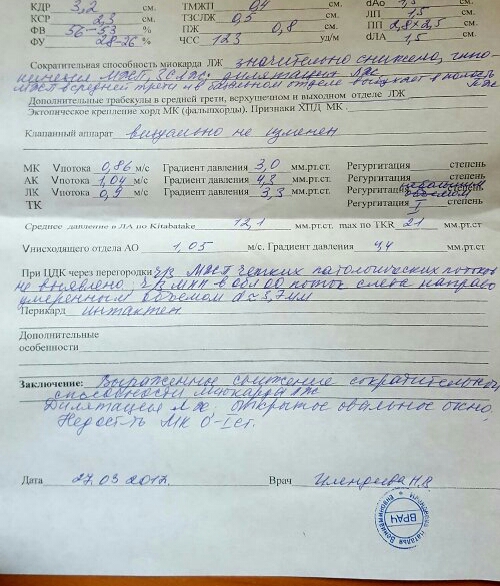 КДР 3,2 см ТМЖП 0,4 см dАо 1,3
КСР 2,3 см ТЗСЛЖ 0,5 см ЛП 1,5
ФВ 56-53 % ПЖ 0,8 см ПП 2,8х2,5
ФУ 28-26 % ЧСС 123 уд/м dЛА 1,5
Сократительная способность миокарда ЛЖ значительно снижена, гипо-
кинезия МЖП, ЗСЛЖ, дилятация ЛЖ
МЖП в средней трети и в базальном отделе выбухает в полость
ПЖ
Дополнительные трабекулы в средней трети, верхушечном и выходном отделе ЛЖ
Эктопическое крепление хорд МК (фальшхорды). Признаки ХПД МК .
Клапанный аппарат визуально не изменен
МК Vпотока 0,86 м/с Градиент давления 3,0 мм.рт.ст. Регургитация степень
АК Vпотока 1,04 м/с Градиент давления 4,3 мм.рт.ст. Регургитация степень
ЛК Vпотока 0,9 м/с Градиент давления 3,3 мм.рт.ст. Регургитация
ТК Регургитация I степень
Среднее давление в ЛА по Kitabatake 12,1 мм.рт.ст. max по TKR 21 мм.рт.ст
Vнисходящего отдела АО 1,05 м/с. Градиент давления 4,4 мм.рт.ст
При ЦДК через перегородки ч/з МЖП четких патологических потоков
не выявлено, ч/з МПП в обл ОО поток слева направо
умеренным объемом d≈3,7мм
Перикард интактен
Дополнительные
особенности
Заключение: Выраженное снижение сократительной
способности миокарда ЛЖ
Дилятация ЛЖ, Открытое овальное окно,
Недост-ть МК 0-Iст.
Дата 27.03 2017г. Врач
ВРАЧ